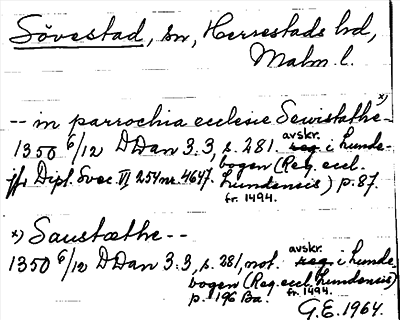 Sövestad, sn, Herrestads hd,
Malm. l.
-- in parrochia ecclesie Sewistathe- x)
1350 6/12 DDan 3.3, s. 281. avskr. reg i Lunde-
bogen (Reg. eccl.
jfr Dipl. Svec. VI, 254 nr. 4647. Lundensis) p. 87.
fr. 1494.
x) Saustæthe --
1350 6/12 DDan 3.3, s. 281, not. avskr. reg. i Lunde-
bogen (Reg. eccl. Lundensis)
p. 196 Ba. fr. 1494.
G.E. 1964.